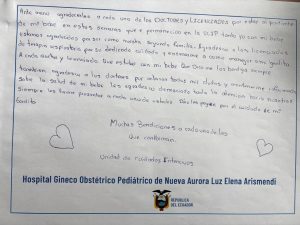 Ante mano agradecerles a cada uno de los DOCTORES y LICENCIADOS por estar al pendiente
de mi bebe en estas semanas que e permanecido en la UCIP tanto yo con mi bebe
estamos agradecidos por ser como nuestra segunda familia. Agradesco a las licenciadas
de terapia respiratoria por su dedicado cuidado y enseñarme a como manejar una gasita
A cada doctor y licenciado. Que estubo con mi bebe Que Dios me los bendiga siempre
Tambien agradesco a los doctores por aclarar todas mis dudas y mantenerme informada
sobre la salud de mi bebe les agradesco demasiado toda la atencion hacia nosotros
siempre les tendre presente a cada uno de ustedes. Dios les pague por el cuidado de mi
Gordito
Muchas Bendiciones a cada uno de los
Que conforman.
Unidad de cuidados Intensivos
Hospital Gineco Obstétrico Pediátrico de Nueva Aurora Luz Elena Arismendi
REPÚBLICA
DEL ECUADOR